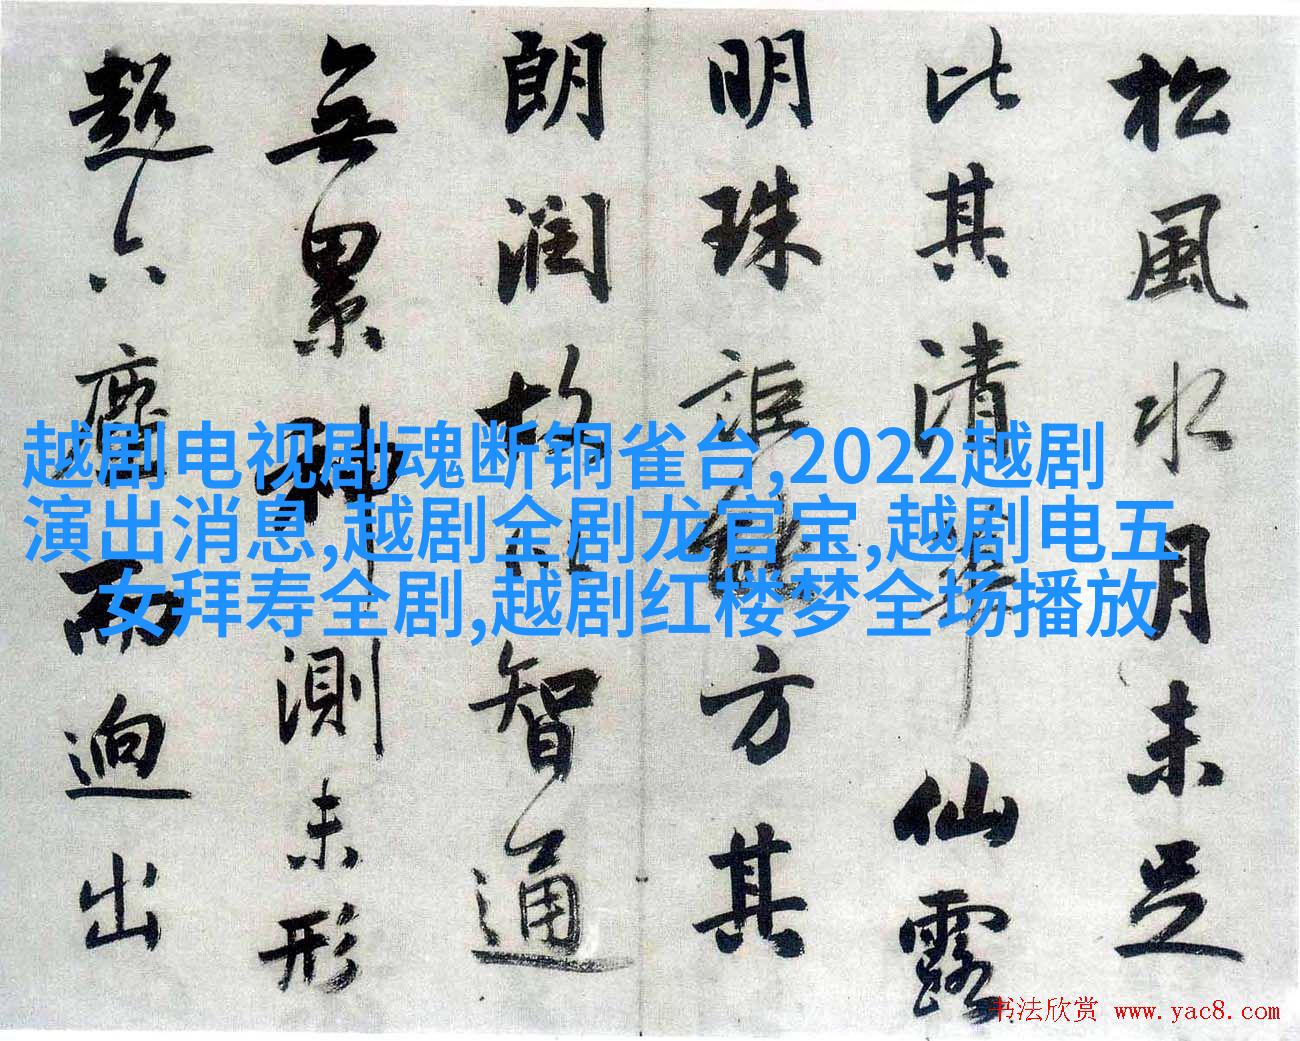 松風水月未足
比其清華仙露
明珠詎能方其
朗潤故以智通
無累神測未形
超六塵而迥出
越剧电视剧魂断铜雀台,2022越剧
演出消息,越剧全剧龙官宝,越剧电五
女拜寿全剧,越剧红楼梦全场播放
书法欣赏 www.yac8.com